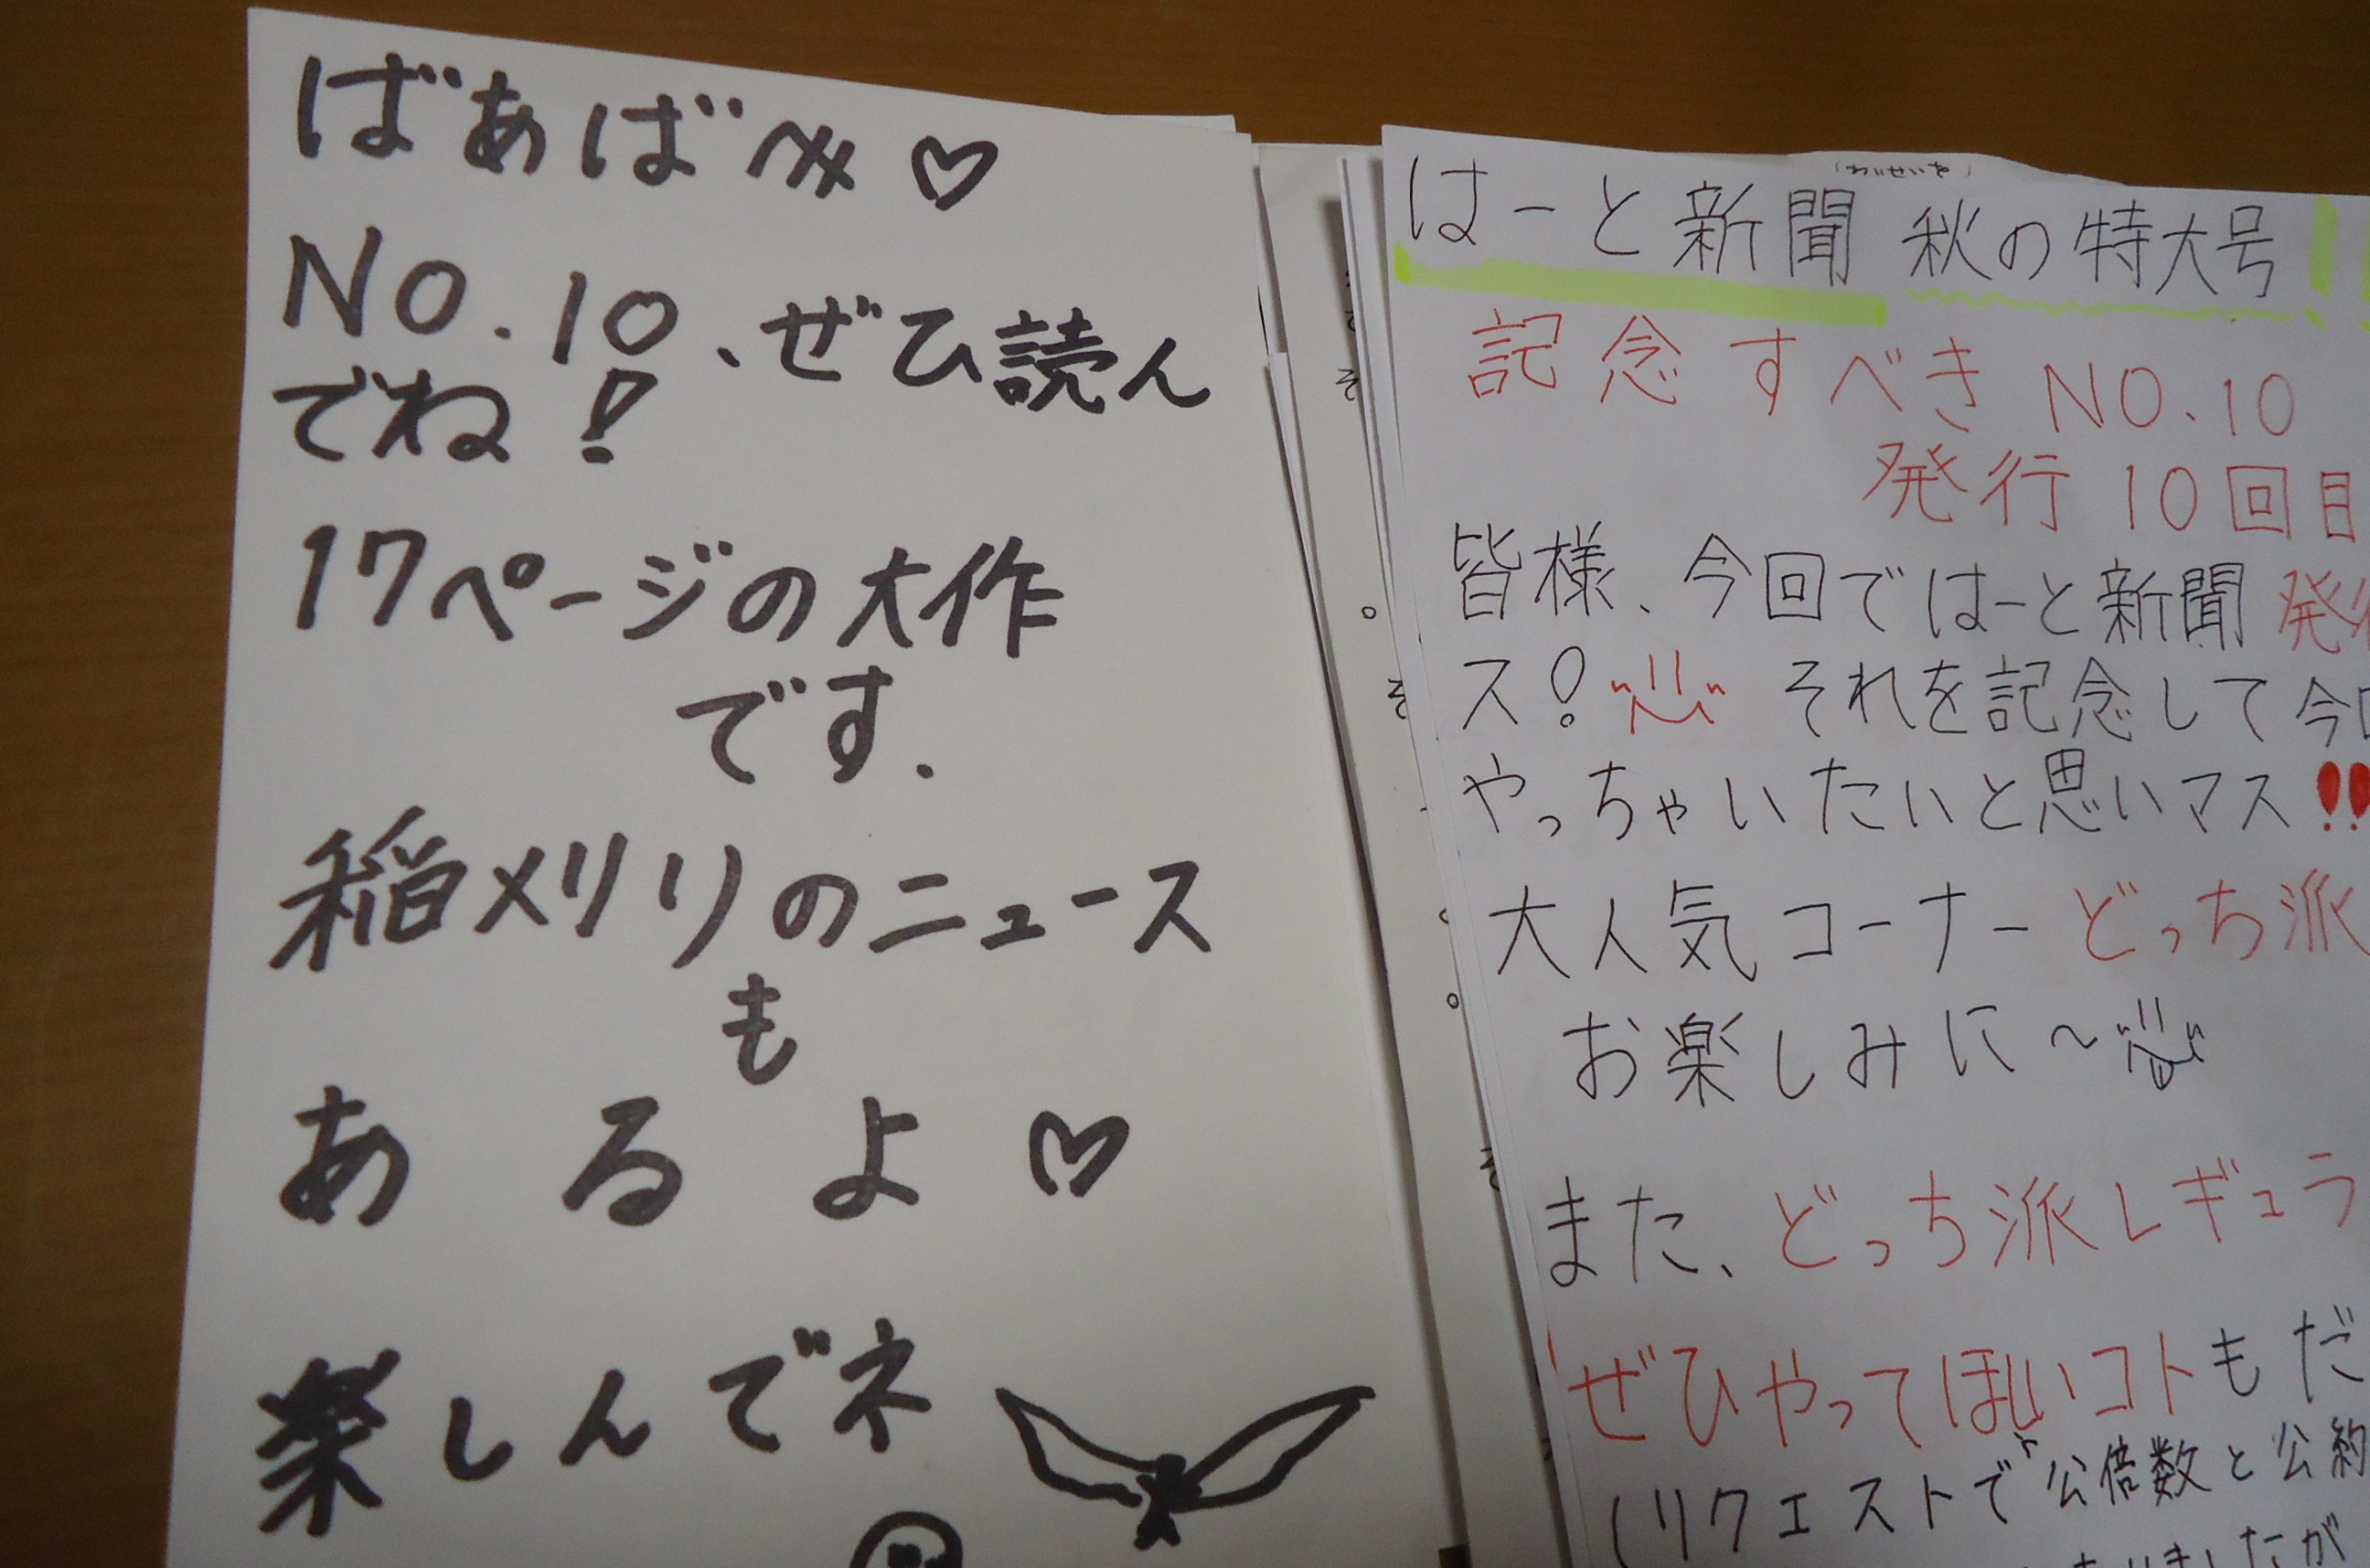 ばあばへ♡
NO.10、ぜひ読ん
でね!
17ページの大作
です.
稲刈りのニュース
も
あるよ♡
楽しんでネ
はーと新聞 秋の特大号!!
記念すべきNO.10
発行10回目
皆様、今回ではーと新聞発行
ス! それを記念して今回
やっちゃいたいと思いマス!!
大人気コーナーどっち派
お楽しみに～
また、どっち派レギュラ
ぜひやってほしいコトもだ
(リクエストで公倍数と公約
ましたが